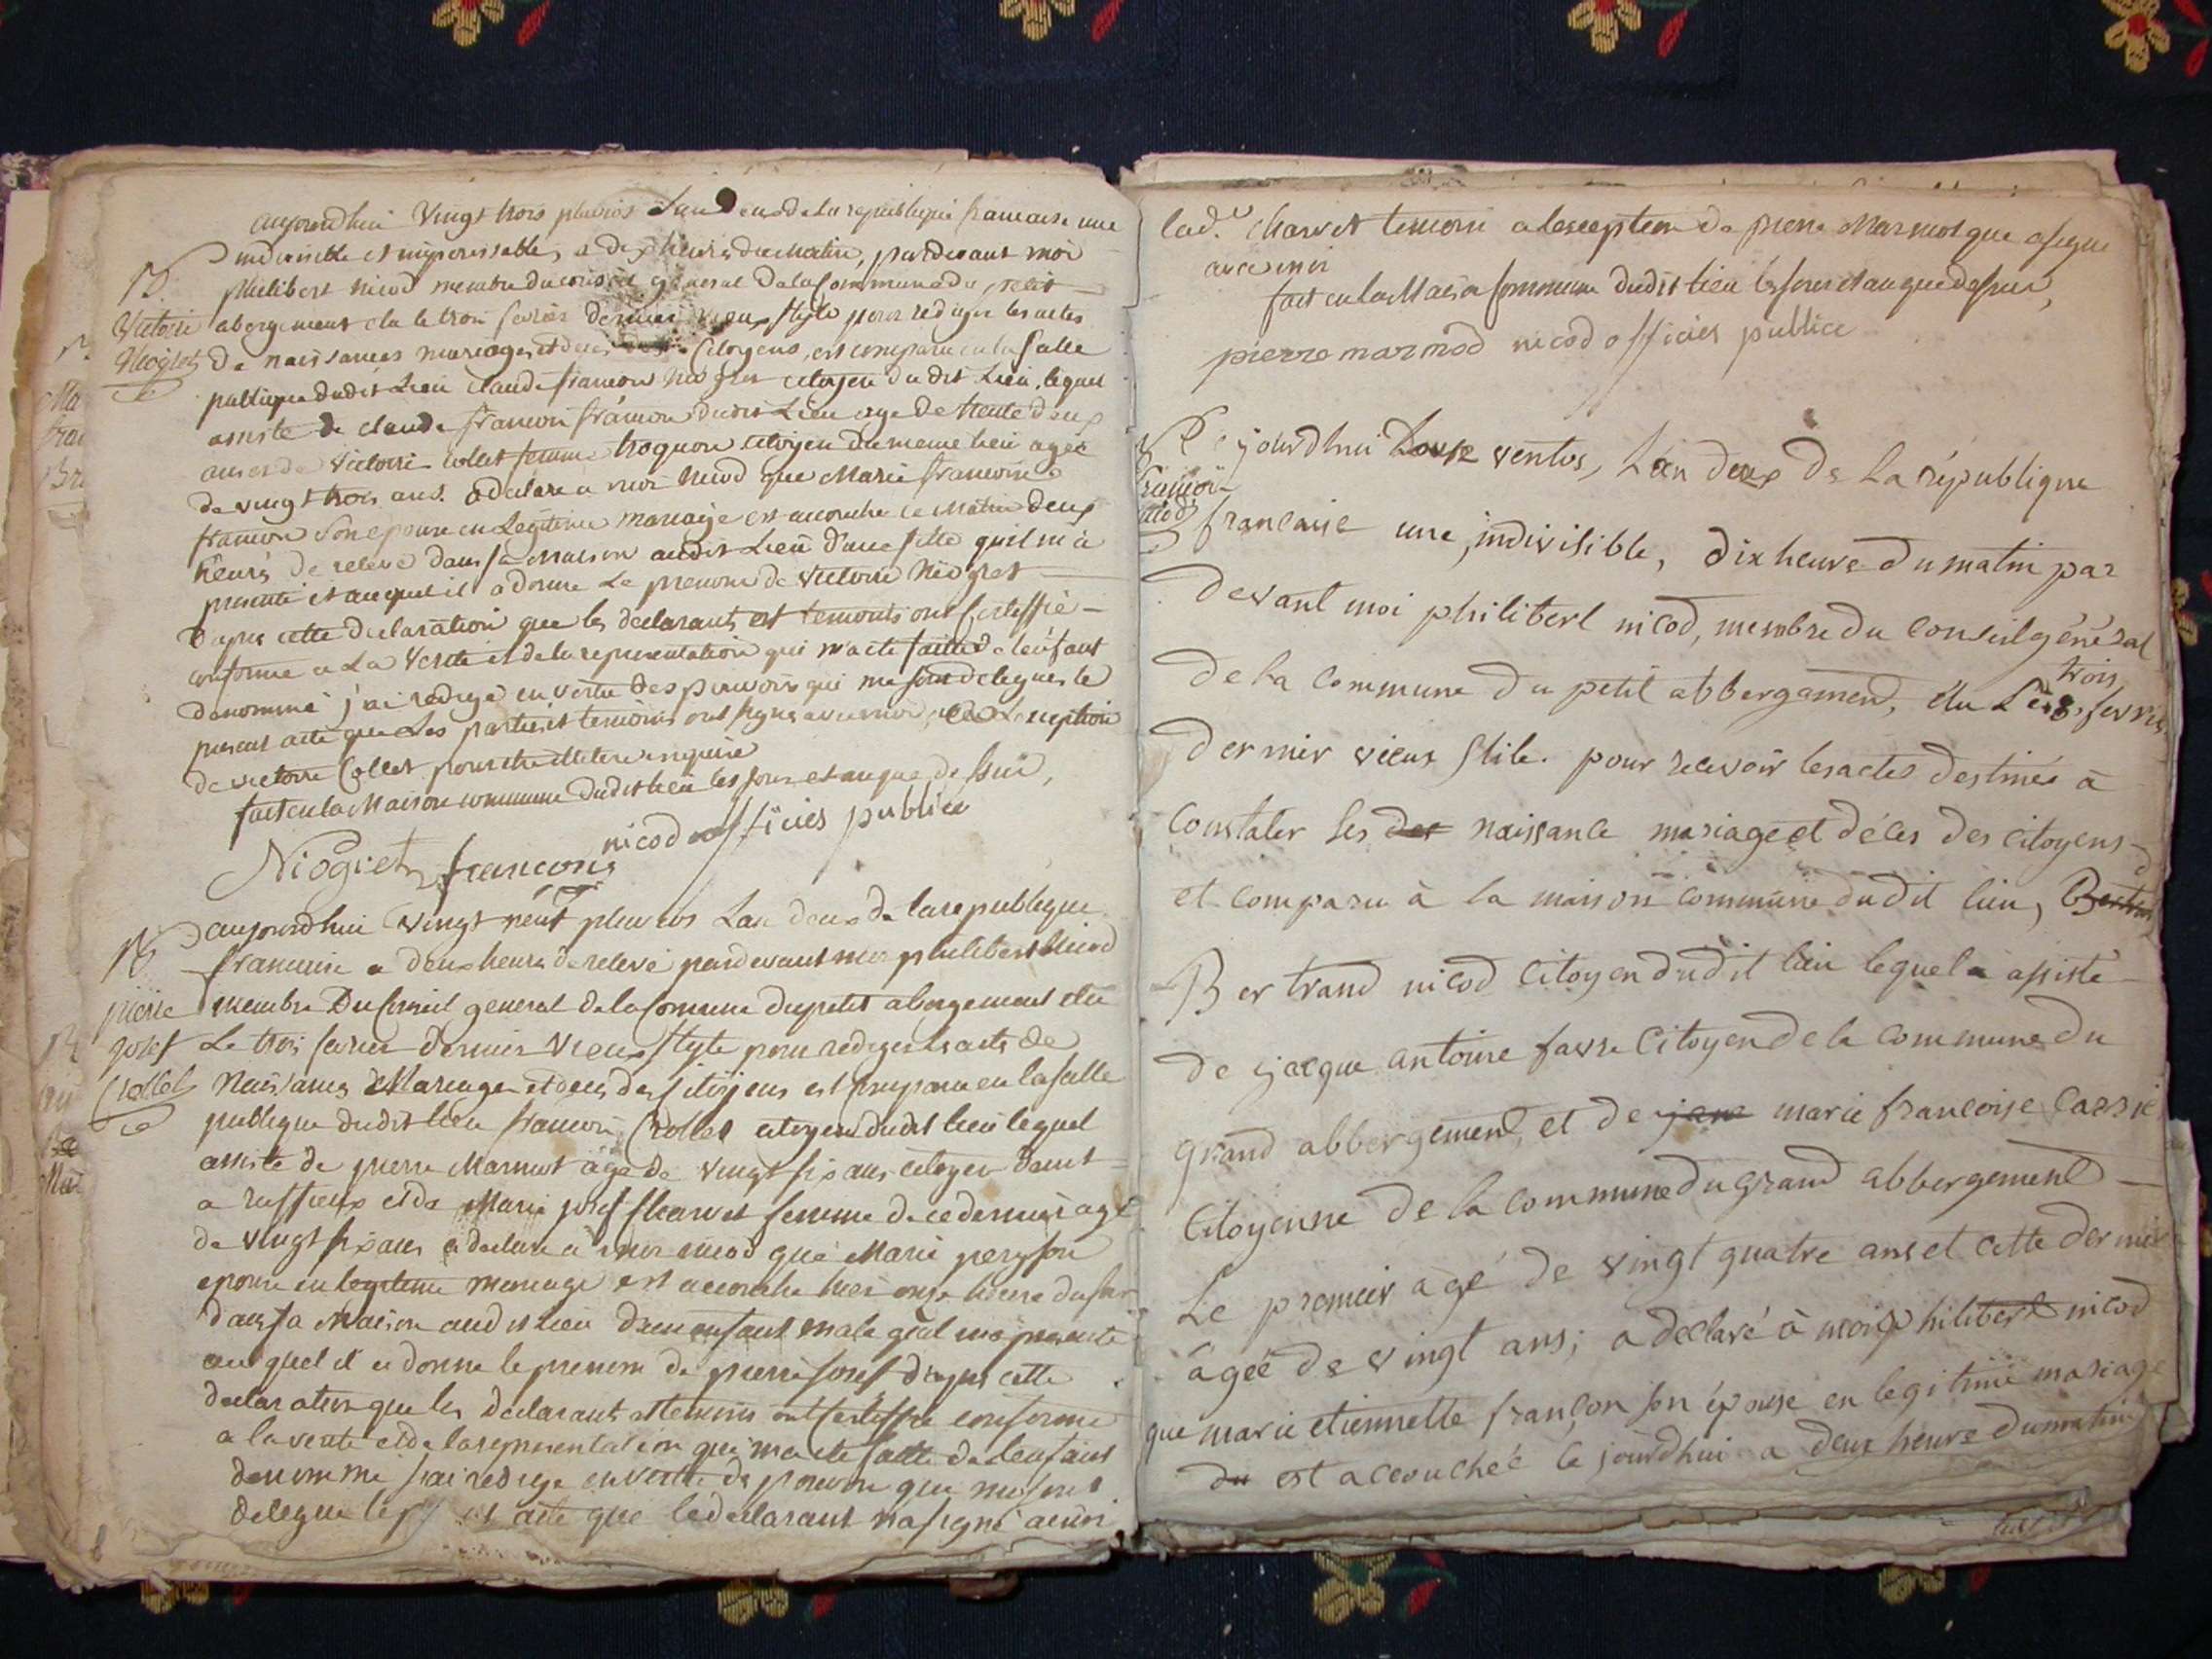 aujourdhui Vingt trois pluvios Lan deux de la republique francaise une
indivisible et imperissable, a dix heures du Matin, pardevant moi
N.
philibert nicod membre du conseil general de la commune du petit
Victoire
abergement elu le trois fevrier dernier vieux style pour rediger les actes
Niogret
de naissances mariages et deces des Citoyens, est comparu en la salle
publique dudit Lieu claude francois Niogret citoyen du dit Lieu, lequel
assiste de claude francon francon dudit Lieu age de trente deux
ans et de Victoire collet femme troquon citoyen du meme lieu agée
de vingt trois ans. a declare a moi Nicod que Marie francoise
francon Son epouse en Legitime mariage est accouche ce Matin deux
heures de releve dans sa maison audit Lieu d'une fille quil m'a
presenté et auquel il a donne Le prenom de Victoire Niogret
dapres cette declaration que les declarants est temoins ont certiffié
conforme a La Verite et de la representation qui m'a été faitte de lenfant
denommé j'ai redigé en vertu des pouvoirs qui me sont delegues le
present acte que Les parties et temoins ont signe avec moi a Lexception
de victoire Collet pour etre illetere enquise
fait en la Maison commune dudit lieu les jour et an que dessus,
nicod officies publice
Niogret francons
aujourdhui Vingt neuf pluvios Lan deux de la republique
N.
francaise a deux heures de relevé pardevant moi philibert Nicod
pierre
membre Du Conseil general de la Comune du petit abergement elu
josef
Le trois fevrier dernier Vieux Style pour rediger les acts de
Crollet
Naissances Mariages et deces des Citoyens est comparu en la salle
publique dudit lieu francois Crollet citoyen dudit lieu lequel
assiste de pierre Marmot agé de vingt six ans citoyen demt
a ruffieux et de Marie josef Charvet femme de ce dernier agé
de vingt six ans a declare a moi nicod que Marie pery son
epouse en legitime mariage est accouche hier onze heure du soir
dans sa Maison audit lieu d'un enfant male quil m'a presenté
au quel il a donne le prenom de pierre josef d'apres cette
declaration que les declarants et temoins ont certiffie conforme
a la verite et de la representation qui m'a ete faitte de lenfant
denommé j'ai redige en vertu des pouvoirs que me sont
delegue le pst acte que le declarant na signé aussi
lad.e Charvet temoin a lexception de pierre Marmot que a signe
avec moi
fait en la Maison commune dudit lieu les jour et an que dessus,
pierre marmod nicod officies publice
N
Cejourdhui Douze ventos, Lan deux De La république
nicod
francaise une, indivisible, dix heure du matin par
devant moi philibert nicod, membre du conseil général
trois
De la commune du petit abbergement, élu Le fevrier
dernier vieux Stile. pour recevoir les actes destinés à
Constater les des naissance mariage et déces des citoyens
et comparu à la maison commune dudit lieu, Bertran
Bertrand nicod Citoyen dudit lieu lequel a assisté
De jacque antoine favre Citoyen de la commune du
grand abbergement, et de jane marie francoise Carrie
Citoyenne de la commune du grand abbergement
Le premier agé de vingt quatre ans et cette dernier
âgée de vingt ans; a declaré à moi philibert nicod
que marie etiennette françon son épouse en legitime mariage
du est accouchéé ce jourdhui a deux heure du matin